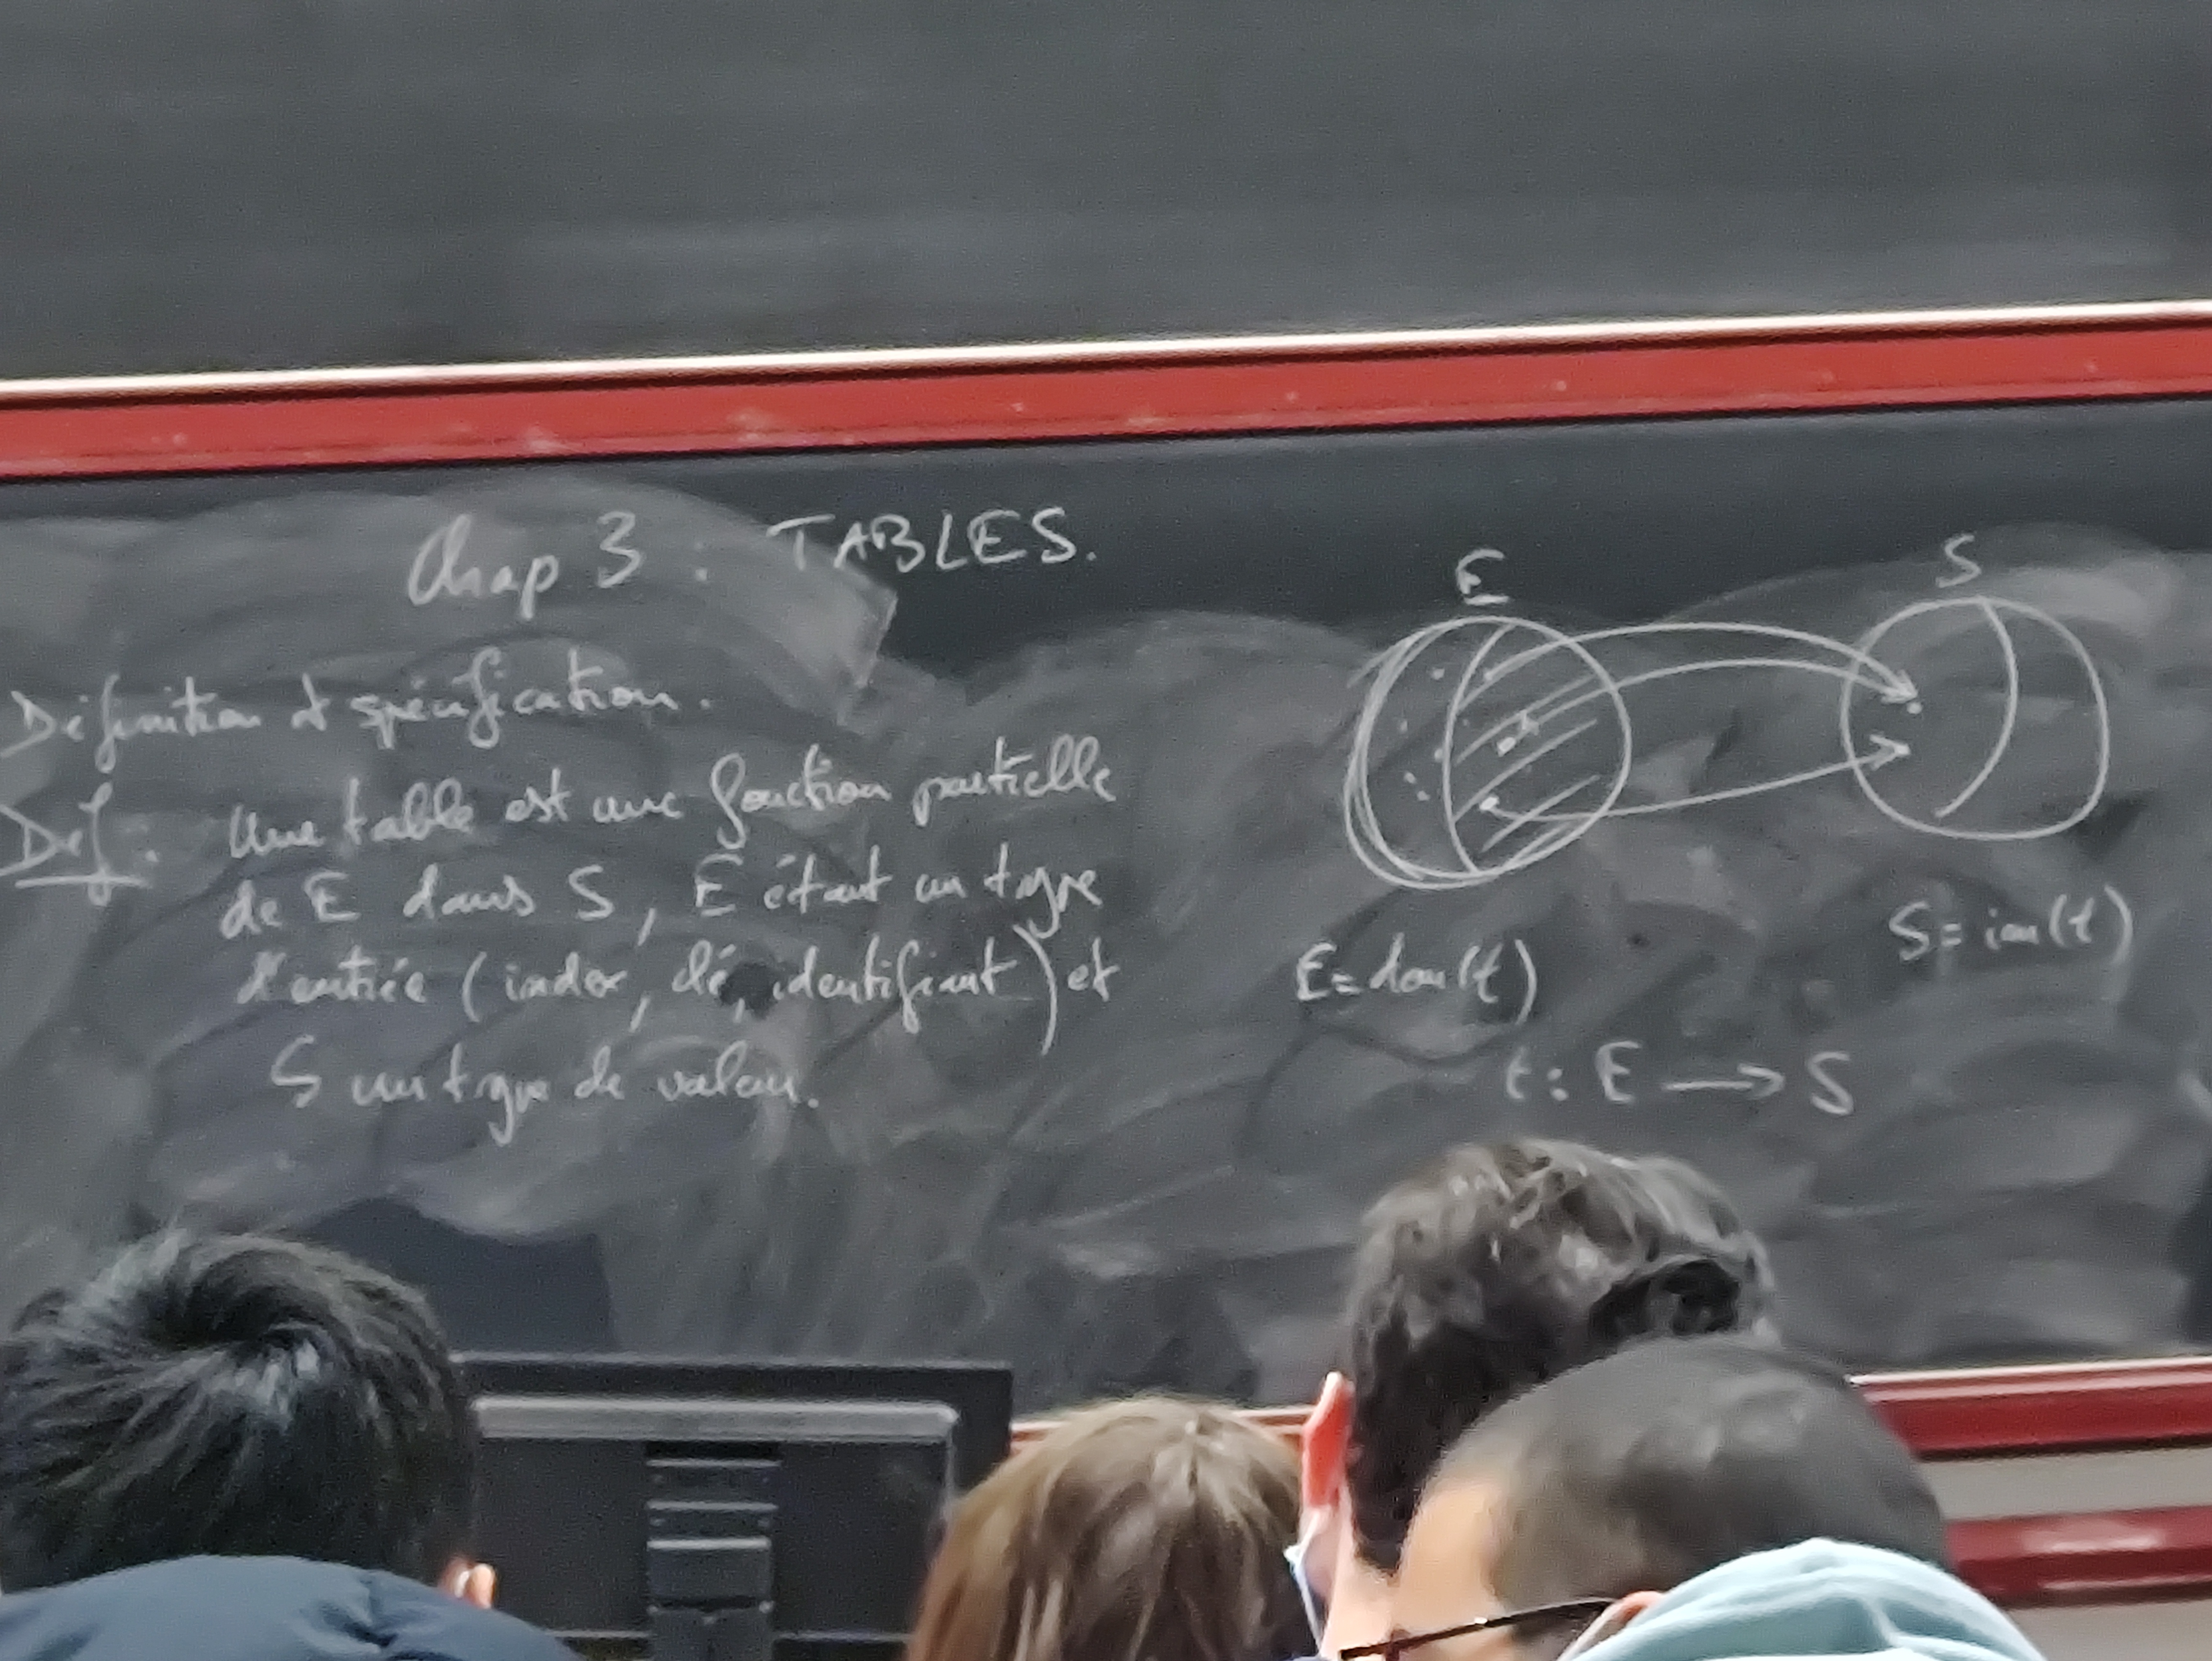 Chap 3 : TABLES.
Définition et spécification.
Def : Une table est une fonction partielle
de E dans S, E étant un type
d'entrée (index, clé, identifiant) et
S un type de valeur.
E
S
E = dom(t)
S = im(t)
t : E → S